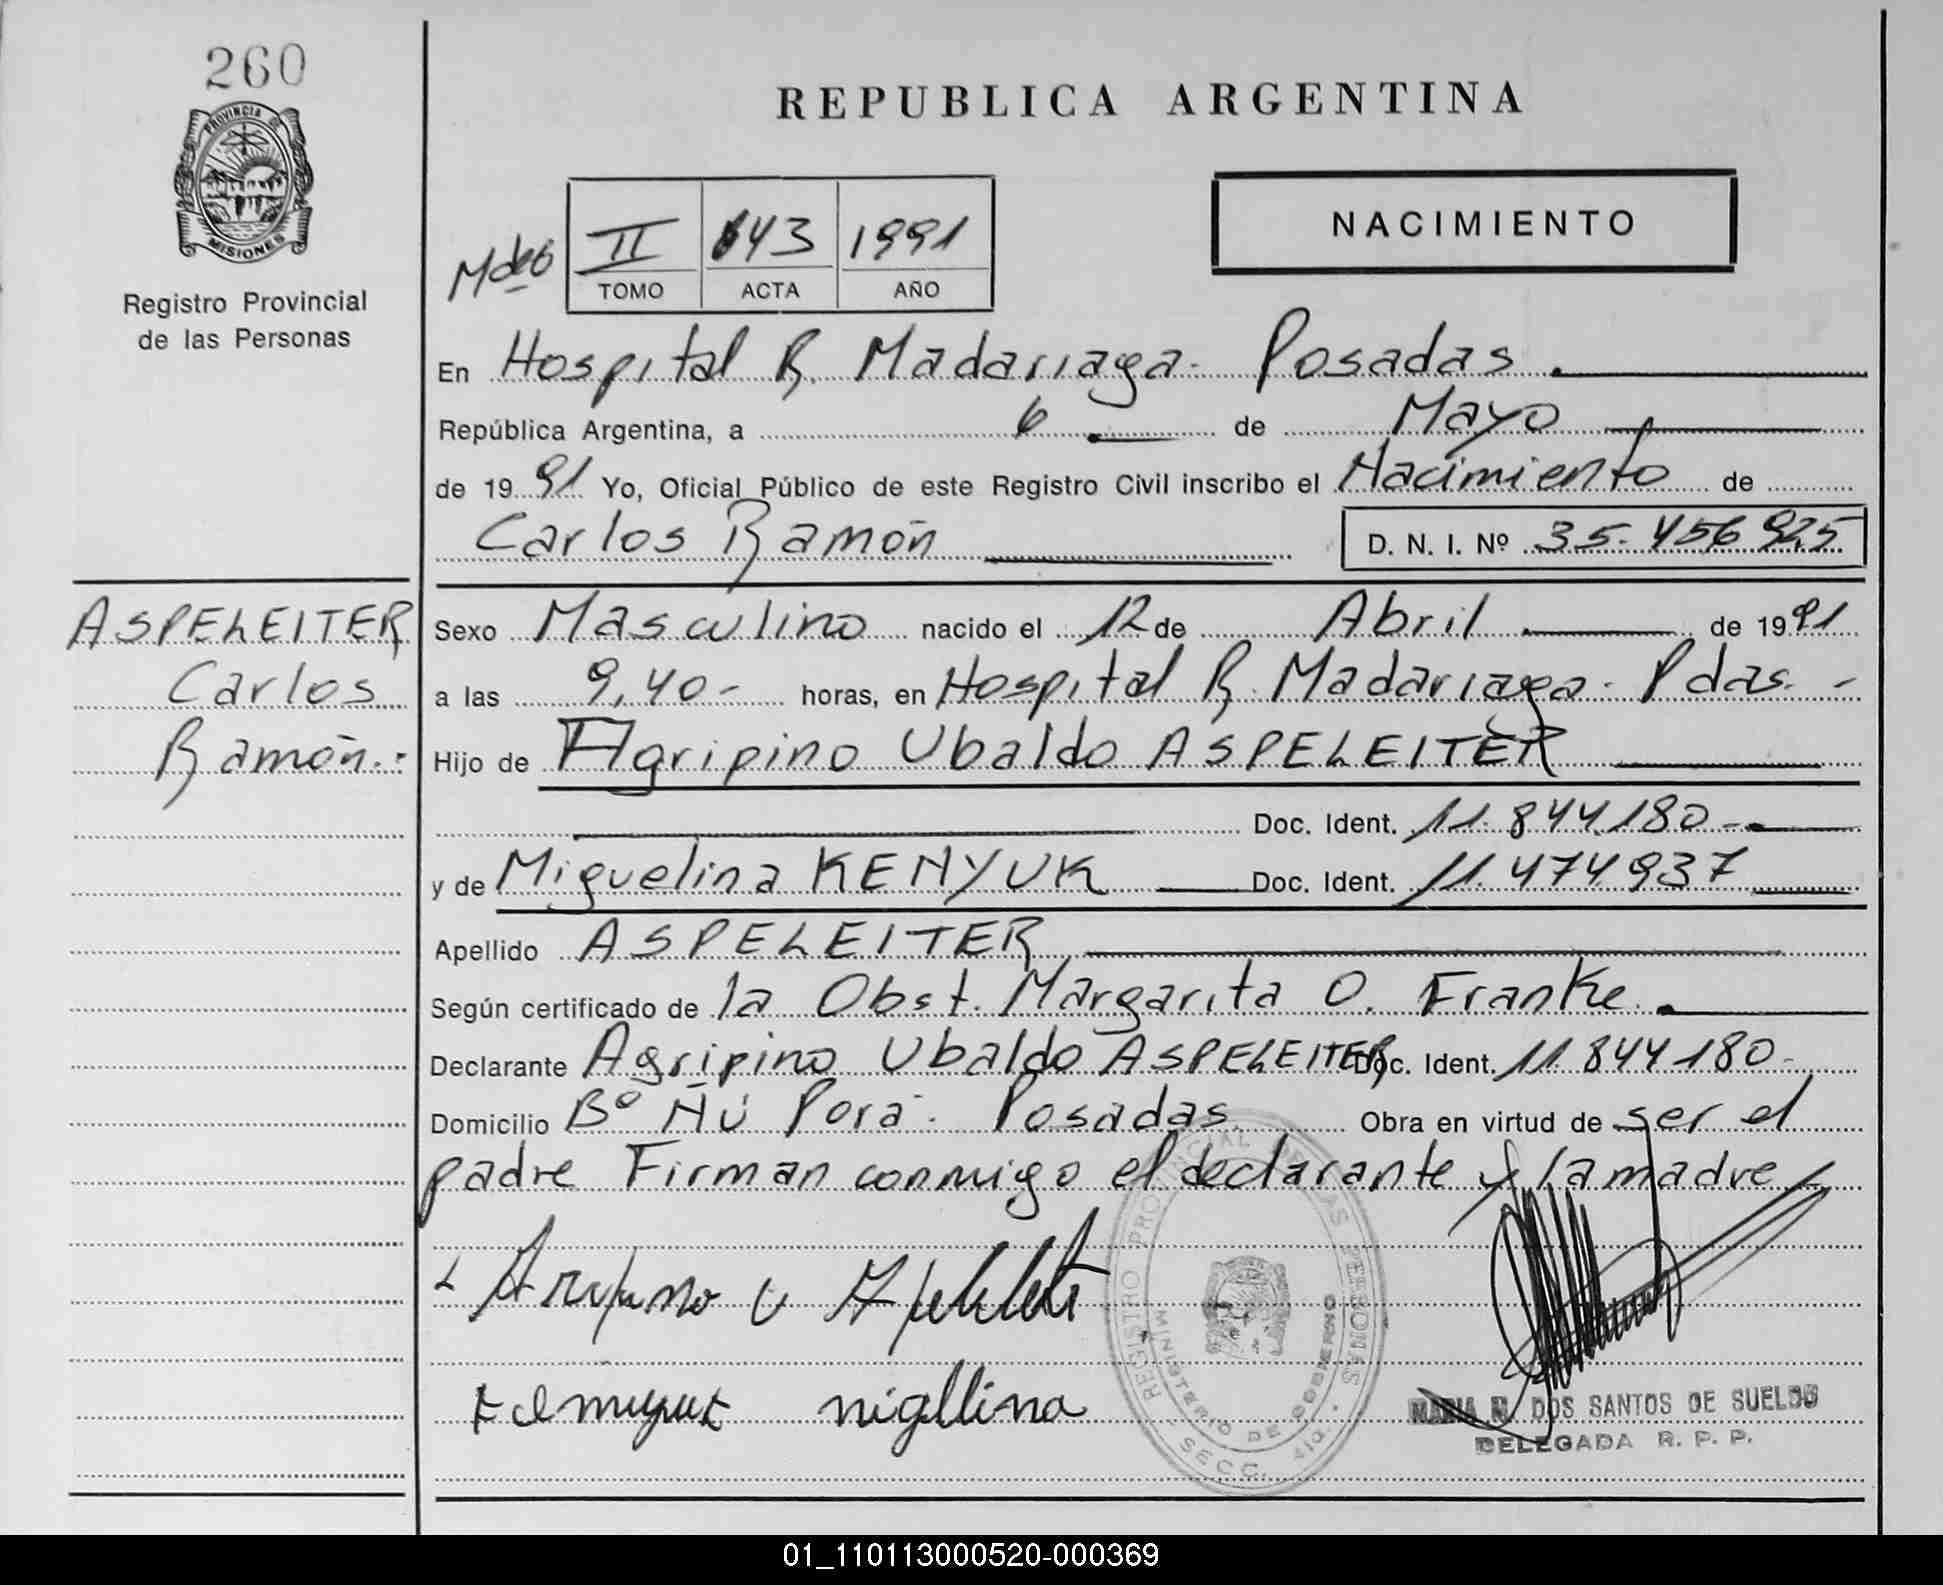 260
PROVINCIA DE
MISIONES
Registro Provincial
de las Personas
REPUBLICA ARGENTINA
NACIMIENTO
II 643 1991
TOMO ACTA AÑO
En Hospital R. Madariaga- Posadas.
República Argentina, a 6 de Mayo
de 1991 Yo, Oficial Público de este Registro Civil inscribo el Nacimiento de
Carlos Ramón D. N. I. Nº 35.456.925
ASPELEITER
Carlos
Ramón.-
Sexo Masculino nacido el 12 de Abril de 1991
a las 9,40- horas, en Hospital R. Madariaga- Pdas.-
Hijo de Agripino Ubaldo ASPELEITER
Doc. Ident. 11.844.180-
y de Miguelina KENYUK Doc. Ident. 11.474.937
Apellido ASPELEITER
Según certificado de la Obst. Margarita O. Franke.
Declarante Agripino Ubaldo ASPELEITER Doc. Ident. 11.844.180-
Domicilio Bº Ñú Porá. Posadas Obra en virtud de ser el
padre Firman conmigo el declarante y la madre
REGISTRO PROVINCIAL DE LAS PERSONAS
MINISTERIO DE GOBIERNO
SECC. 4ta.
MARIA M. DOS SANTOS DE SUELDO
DELEGADA R. P. P.
01_110113000520-000369